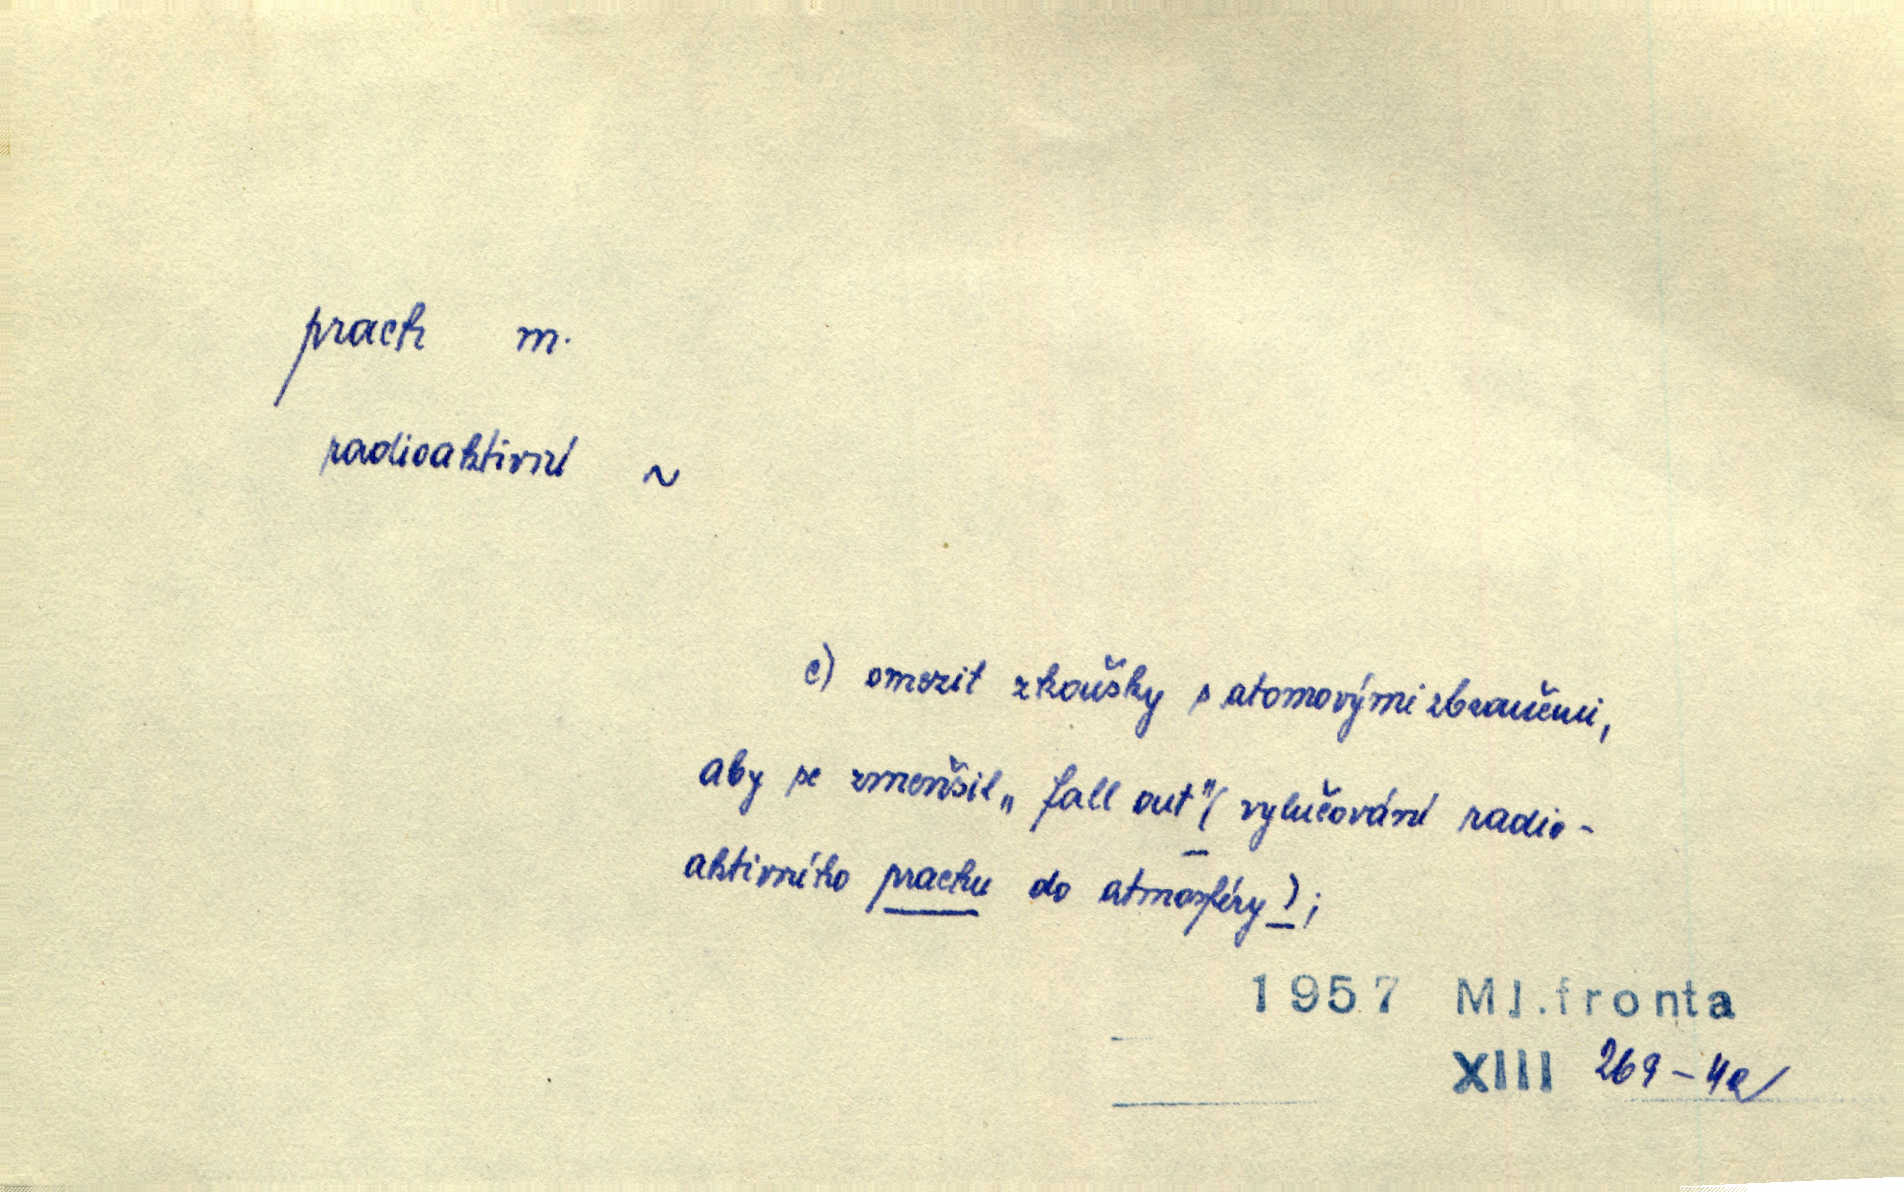 prach m.
radioaktivní ~
c) omezit zkoušky s atomovými zbraněmi,
aby se zmenšil „fall out" ( vylučování radio-
aktivního prachu do atmosféry );
1957 Ml.fronta
XIII 269-4